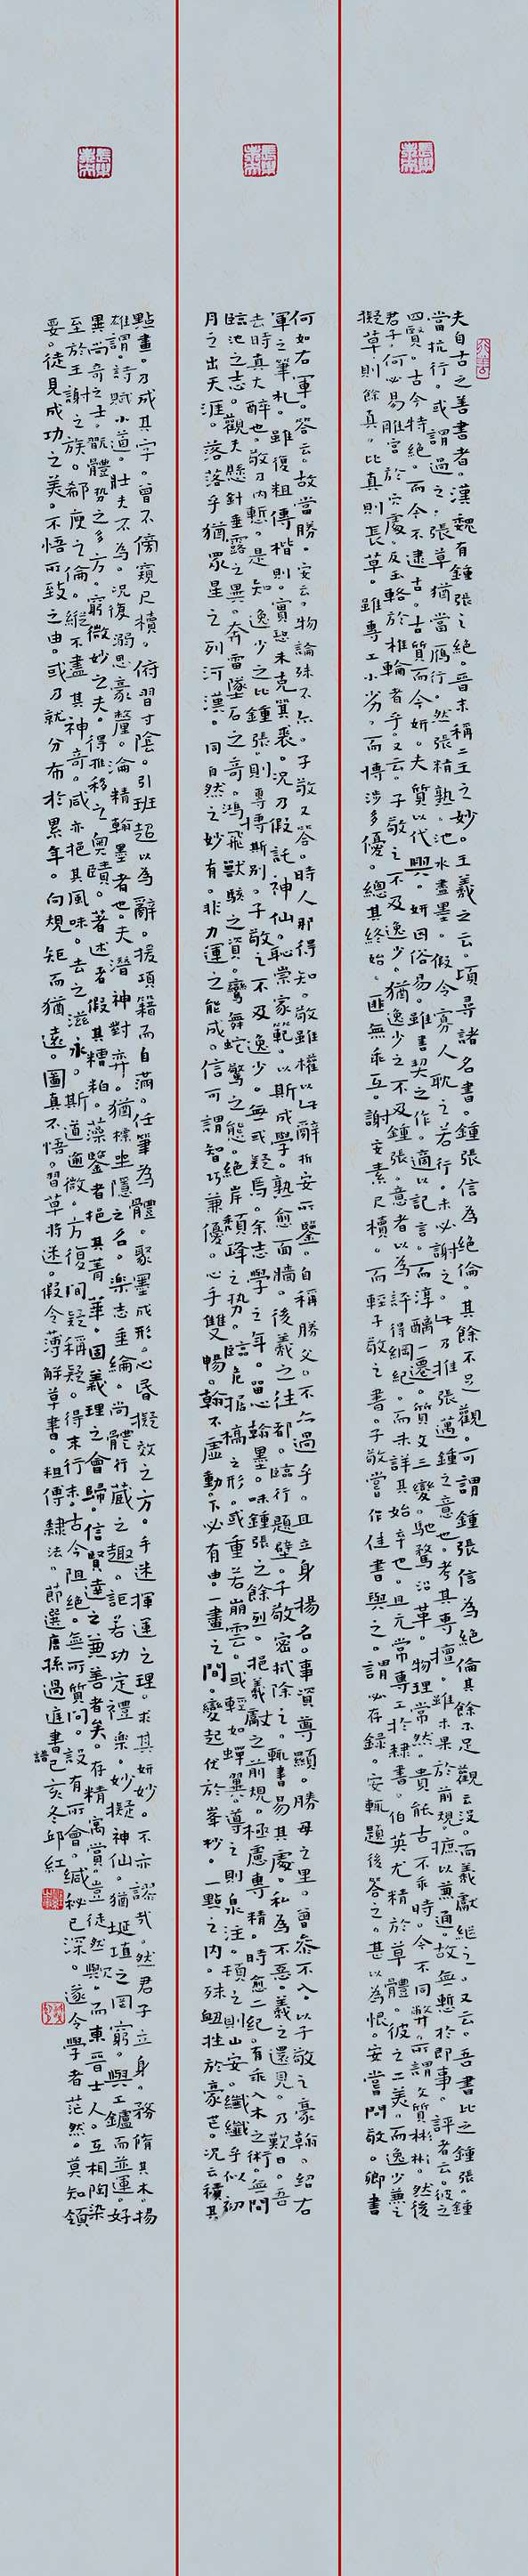 夫自古之善書者。漢魏有鍾張之絕。晉末稱二王之妙。王羲之云。頃尋諸名書。鍾張信為絕倫。其餘不足觀。可謂鍾張信為絕倫其餘不足觀云沒。而羲獻繼之。又云。吾書比之鍾張。鍾
當抗行。或謂過之。張草猶當鴈行。然張精熟。池水盡墨。假令寡人耽之若行。未必謝之。此乃推張邁鍾之意也。考其專擅。雖未果於前規。摭以兼通。故無慙於即事。評者云。彼之
四賢。古今特絕。而今不逮古。古質而今妍。夫質以代興。妍因俗易。雖書契之作。適以記言。而淳醨一遷。質文三變。馳騖沿革。物理常然。貴能古不乖時。今不同弊。所謂文質彬彬。然後
君子。何必易雕宮於穴處。反玉輅於椎輪者乎。又云。子敬之不及逸少。猶逸少之不及鍾張。意者以為評得綱紀。而未詳其始卒也。且元常專工於隸書。伯英尤精於草體。彼之二美。而逸少兼之
擬草則餘真。比真則長草。雖專工小劣。而博涉多優。總其終始。匪無乖互。謝安素尺牘。而輕子敬之書。子敬嘗作佳書與之。謂必存錄。安輒題後答之。甚以為恨。安嘗問敬。卿書
何如右軍。答云。故當勝。安云。物論殊不尒。子敬又答。時人那得知。敬雖權以此辭折安所鑒。自稱勝父。不亦過乎。且立身揚名。事資尊顯。勝母之里。曾參不入。以子敬之豪翰。紹右
軍之筆札。雖復粗傳楷則。實恐未克箕裘。況乃假託神仙。恥崇家範。以斯成學。孰愈面牆。後羲之往都。臨行題壁。子敬密拭除之。輒書易其處。私為不惡。羲之還見。乃歎曰。吾
去時真大醉也。敬乃內慙。是知逸少之比鍾張。則專博斯別。子敬之不及逸少。無或疑焉。余志學之年。留心翰墨。味鍾張之餘烈。挹羲獻之前規。極慮專精。時愈二紀。有乖入木之術。無間
臨池之志。觀夫懸針垂露之異。奔雷墜石之奇。鴻飛獸駭之資。鸞舞蛇驚之態。絕岸頹峰之勢。臨危據槁之形。或重若崩雲。或輕如蟬翼。導之則泉注。頓之則山安。纖纖乎似初
月之出天涯。落落乎猶眾星之列河漢。同自然之妙有。非力運之能成。信可謂智巧兼優。心手雙暢。翰不虛動。下必有由。一畫之間。變起伏於峯杪。一點之內。殊衄挫於豪芒。況云積其
點畫。乃成其字。曾不傍窺尺牘。俯習寸陰。引班超以為辭。援項籍而自滿。任筆為體。聚墨成形。心昏擬效之方。手迷揮運之理。求其妍妙。不亦謬哉。然君子立身。務脩其本。揚
雄謂。詩賦小道。壯夫不為。況復溺思豪氂。淪精翰墨者也。夫潛神對弈。猶標坐隱之名。樂志垂綸。尚體行藏之趣。詎若功定禮樂。妙擬神仙。猶埏埴之罔窮。與工鑪而並運。好
異尚奇之士。翫體勢之多方。窮微妙之夫。得推移之奧賾。著述者假其糟粕。藻鑒者挹其菁華。固義理之會歸。信賢達之兼善者矣。存精寓賞。豈徒然歟。而東晉士人。互相陶染
至於王謝之族。郗庾之倫。縱不盡其神奇。咸亦挹其風味。去之滋永。斯道逾微。方復聞疑稱疑。得末行末。古今阻絕。無所質問。設有所會。緘秘已深。遂令學者茫然。莫知領
要。徒見成功之美。不悟所致之由。或乃就分布於累年。向規矩而猶遠。圖真不悟。習草將迷。假令薄解草書。粗傳隸法。節選唐孫過庭書譜己亥冬邱紅